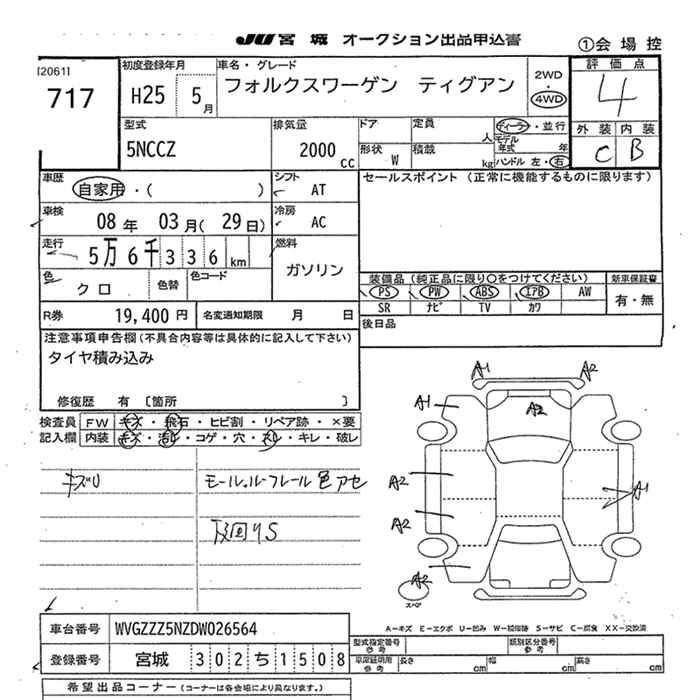 JU 宮城 オークション出品申込書
①会場控
[2061]
717
初度登録年月
H25 5月
車名・グレード
フォルクスワーゲン ティグアン
2WD
・
4WD
評価点
4
外装 内装
C B
型式
5NCCZ
排気量
2000 cc
ドア
定員 人
形状 W
積載 kg
ディーラー・並行
モデル年式 年
ハンドル 左・右
車歴
自家用・( )
シフト
AT
セールスポイント (正常に機能するものに限ります)
車検
08年 03月(29日)
冷房
AC
走行
5万6千336km
燃料
ガソリン
色
クロ
色替
色コード
装備品(純正品に限り○をつけてください)
新車保証書
PS PW ABS エアB AW
有・無
SR ナビ TV カワ
R券 19,400円
名変通知期限 月 日
後日品
注意事項申告欄(不具合内容等は具体的に記入して下さい)
タイヤ積み込み
修復歴 有 [箇所 ]
検査員記入欄
FW キズ・飛石・ヒビ割・リペア跡・×要
内装 キズ・汚レ・コゲ・穴・スレ・キレ・破レ
キズU
モール、ルーフレール色アセ
下回りS
A1 A2
A1 A2
A2 A1
A2
A2
スペア
A-キズ E-エクボ U-凹み W-補修跡 S-サビ C-腐食 XX-交換済
車台番号 WVGZZZ5NZDW026564
登録番号 宮城 302ち1508
型式指定番号 参考
類別区分番号 参考
車庫証明用 参考 長さ cm 幅 cm 高さ cm
希望出品コーナー(コーナーは各会場により異なります。)